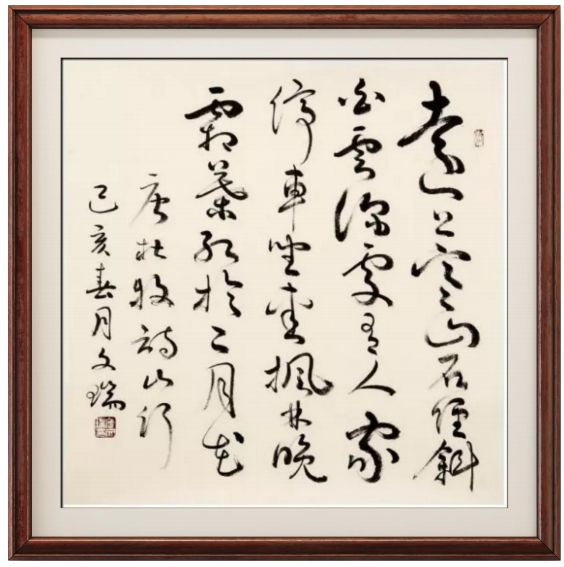 遠上寒山石徑斜
白雲深處有人家
停車坐愛楓林晚
霜葉紅於二月花
唐杜牧詩山行
己亥春月文瑞